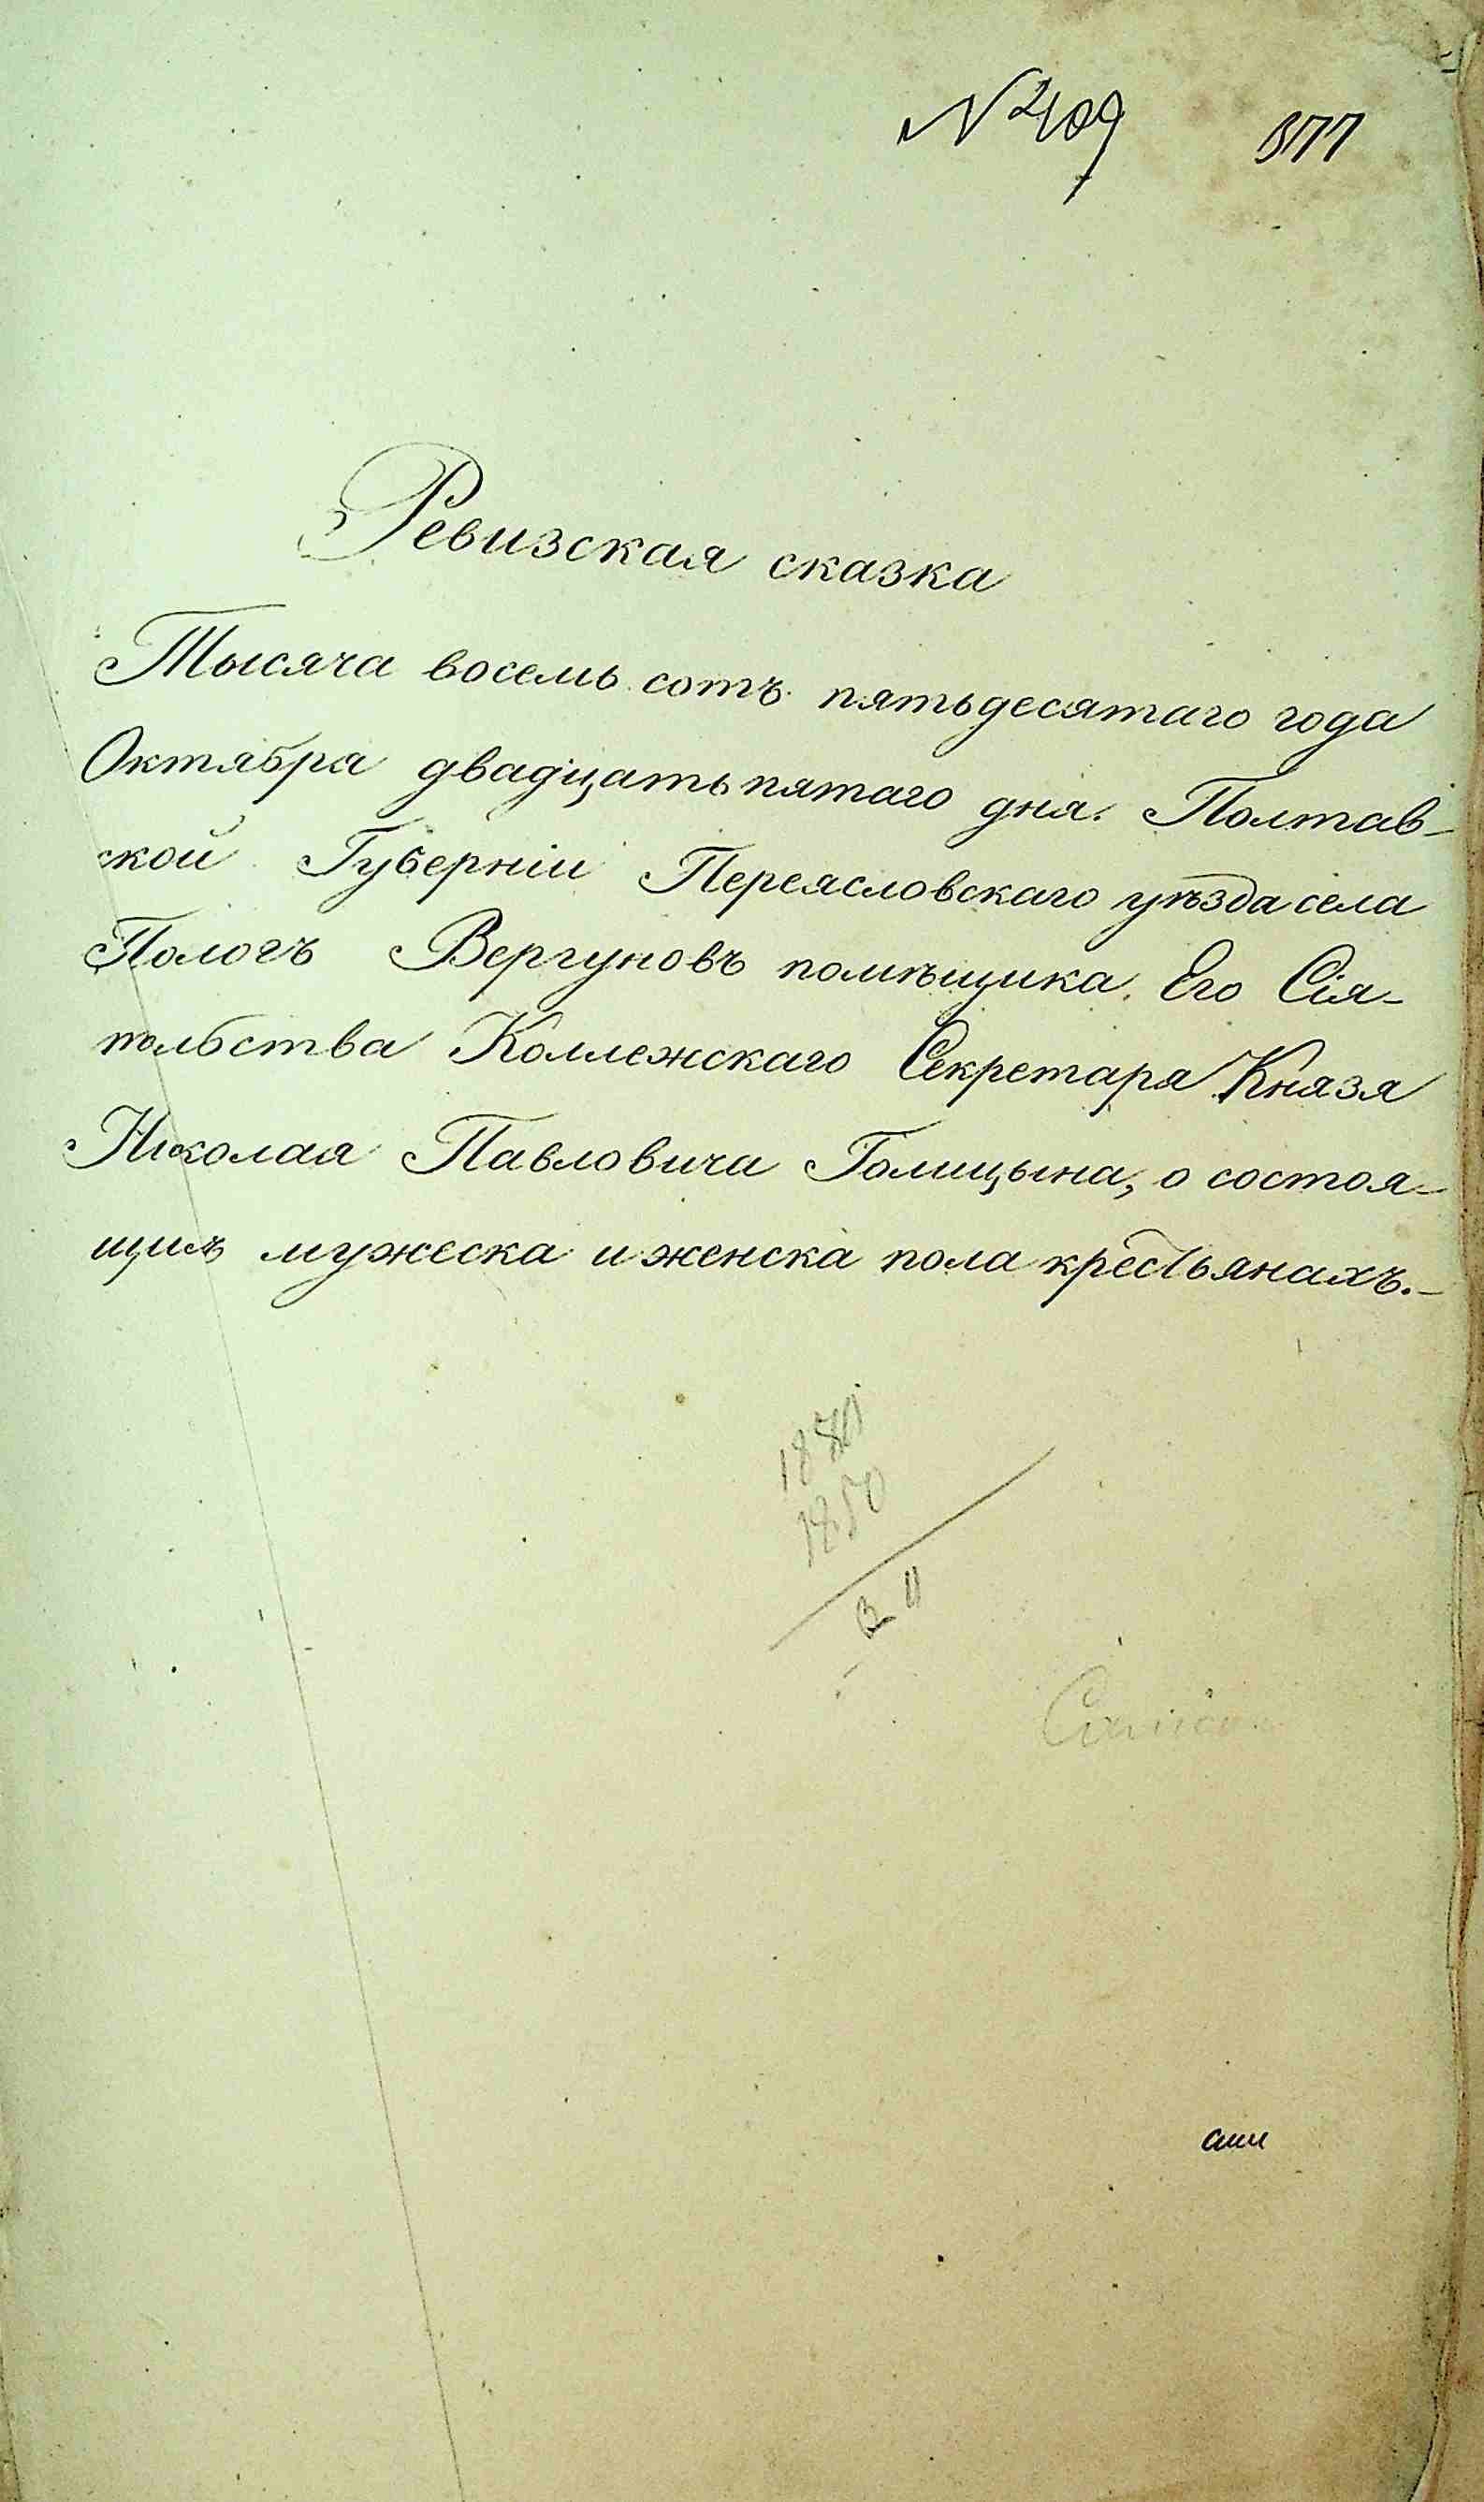 N 409 377
Ревизская сказка
Тысяча восемь сотъ пятьдесятаго года
Октября двадцать пятаго дня. Полтав-
ской Губерніи Переясловскаго уѣзда села
Пологъ Вергуновъ помѣщика Его Сія-
тельства Коллежскаго Секретаря Князя
Николая Павловича Голицына, о состоя-
щихъ мужеска и женска пола крестьянахъ.-
1850